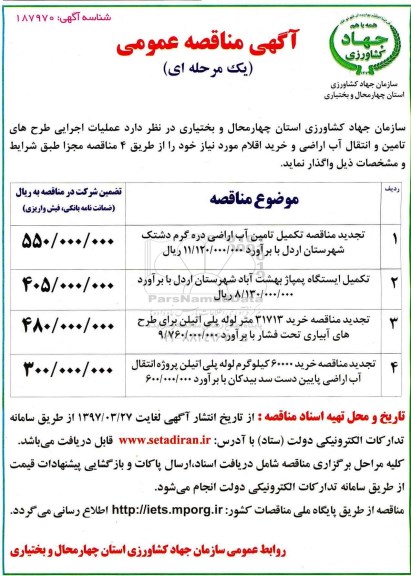 شناسه آگهی: ۱۸۷۹۷۰
همه با هم
جهاد
کشاورزی
سازمان جهاد کشاورزی
استان چهارمحال و بختیاری
آگهی مناقصه عمومی
(یک مرحله ای)
سازمان جهاد کشاورزی استان چهارمحال و بختیاری در نظر دارد عملیات اجرایی طرح های
تامین و انتقال آب اراضی و خرید اقلام مورد نیاز خود را از طریق ۴ مناقصه مجزا طبق شرایط و
مشخصات ذیل واگذار نماید.
ردیف موضوع مناقصه تضمین شرکت در مناقصه به ریال
(ضمانت نامه بانکی، فیش واریزی)
۱ تجدید مناقصه تکمیل تامین آب اراضی دره گرم دشتک
شهرستان اردل با برآورد ۱۱/۱۲۰/۰۰۰/۰۰۰ ریال ۵۵۰/۰۰۰/۰۰۰
۲ تکمیل ایستگاه پمپاژ بهشت آباد شهرستان اردل با برآورد
۸/۱۳۰/۰۰۰/۰۰۰ ریال ۴۰۵/۰۰۰/۰۰۰
۳ تجدید مناقصه خرید ۳۱۷۱۳ متر لوله پلی اتیلن برای طرح
های آبیاری تحت فشار با برآورد ۹/۷۶۰/۰۰۰/۰۰۰ ۴۸۰/۰۰۰/۰۰۰
۴ تجدید مناقصه خرید ۶۰۰۰۰ کیلوگرم لوله پلی اتیلن پروژه انتقال
آب اراضی پایین دست سد بیدکان با برآورد ۶۰۰/۰۰۰/۰۰۰ ۳۰۰/۰۰۰/۰۰۰
ParsNamadData
تاریخ و محل تهیه اسناد مناقصه : از تاریخ انتشار آگهی لغایت ۱۳۹۷/۰۳/۲۷ از طریق سامانه
تدارکات الکترونیکی دولت (ستاد) با آدرس: www.setadiran.ir قابل دریافت می‌باشد.
کلیه مراحل برگزاری مناقصه شامل دریافت اسناد،ارسال پاکات و بازگشایی پیشنهادات قیمت
از طریق سامانه تدارکات الکترونیکی دولت انجام می‌شود.
مناقصه از طریق پایگاه ملی مناقصات کشور: http://iets.mporg.ir اطلاع رسانی می گردد.
روابط عمومی سازمان جهاد کشاورزی استان چهارمحال و بختیاری